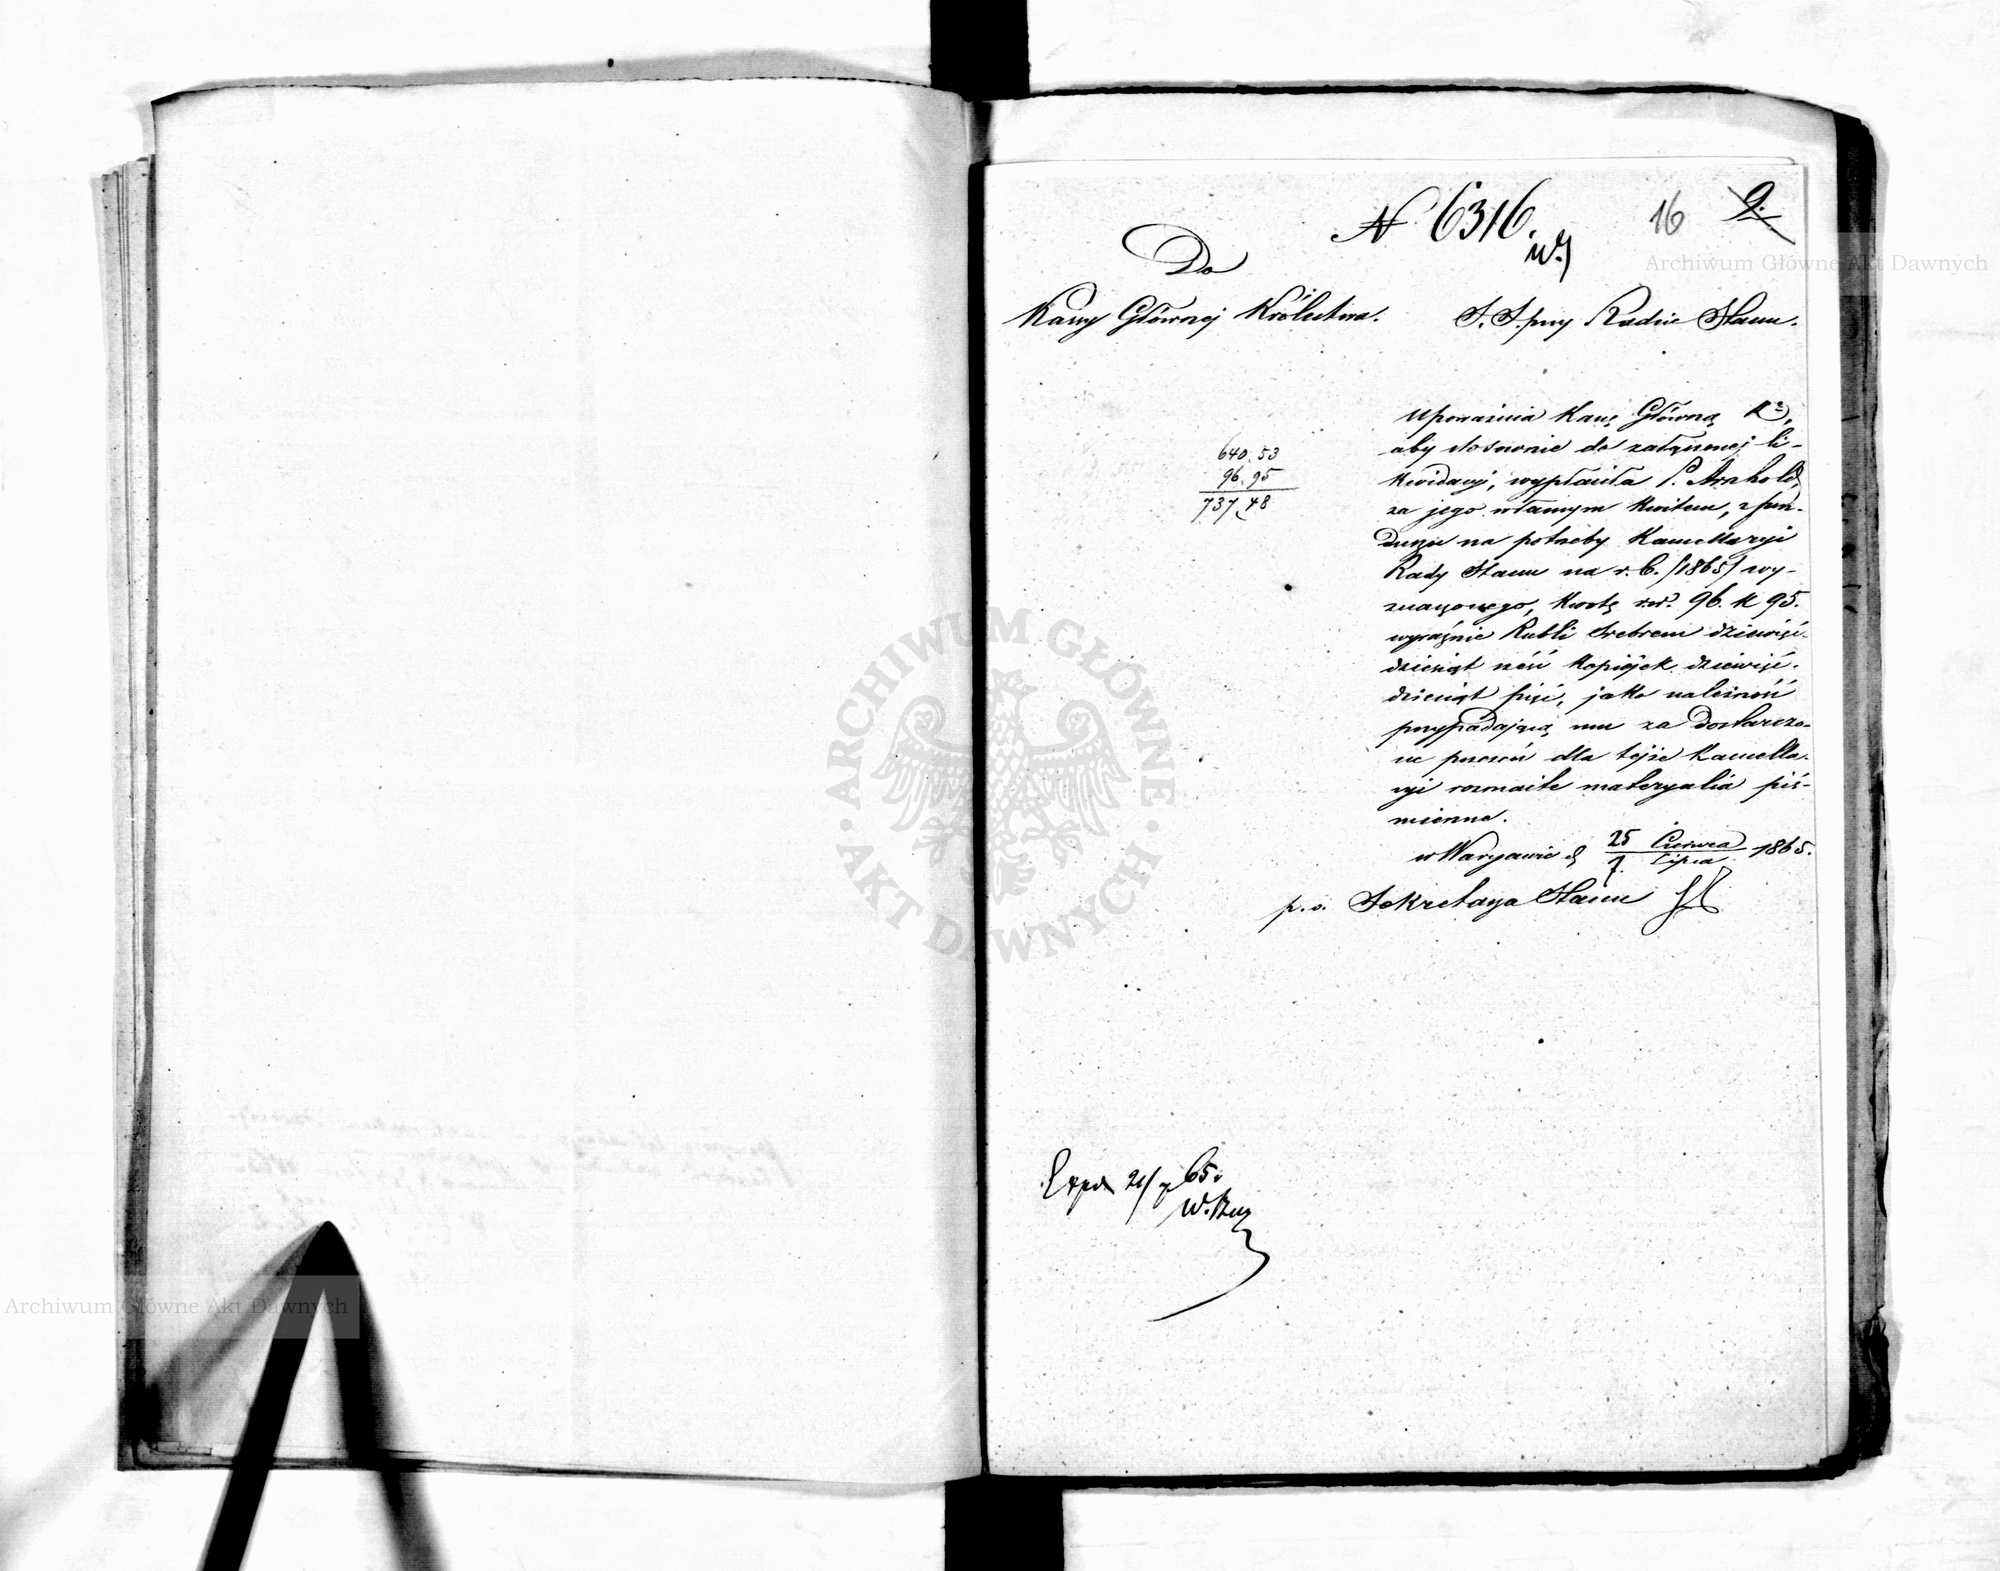 N 6316.
16
9.
Do
Kassy Głównej Królestwa.
S. S. przy Radzie Stanu.
Upoważnia Kassę Główną Kr.
aby stosownie do załączonej li-
kwidacyi, wypłaciła P. Arnhold,
za jego własnym kwitem, z fun-
duszu na potrzeby Kancellaryi
Rady Stanu na r. b. /1865/ wy-
znaczonego, kwotę rsr. 96. k 95.
wyraźnie Rubli Srebrem dziewięć-
dziesiąt sześć kopiejek dziewięć-
dziesiąt pięć, jako należność
przypadającą mu za dostarczo-
ne przezeń dla tejże Kancella-
ryi rozmaite materyalia piś-
mienne.
640.53
96.95
737.48
w Warszawie d 25 Czerwca / 7 Lipca 1865.
p.o. Sekretarza Stanu
Exped 21/7 65.
Archiwum Główne Akt Dawnych
Archiwum Główne Akt Dawnych
ARCHIWUM GŁÓWNE
AKT DAWNYCH